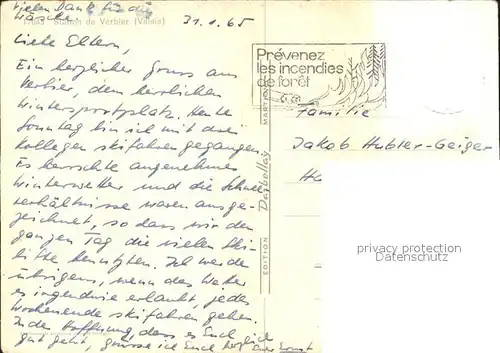 Vielen Dank für die
Wäsche.
Station de Verbier (Valais)
31.1.65
Liebe Eltern,
Ein herzlicher Gruss aus
Verbier, dem herrlichen
Wintersportplatz. Heute
Sonntag bin ich mit drei
Kollegen skifahren gegangen.
Es herrschte angenehmes
Winterwetter und die Schnee-
verhältnisse waren ausge-
zeichnet, so dass wir den
ganzen Tag die vielen Ski-
lifte benutzten. Ich werde
übrigens, wenn das Wetter
es irgendwie erlaubt, jedes
Wochenende skifahren gehen.
In der Hoffnung, dass es Euch
gut geht, grüsse ich Euch herzlich
Euer Ernst
EDITION Darbellay MARTIGNY
Prévenez
les incendies
de forêt
Familie
Jakob Hubler-Geiger
privacy protection
Datenschutz